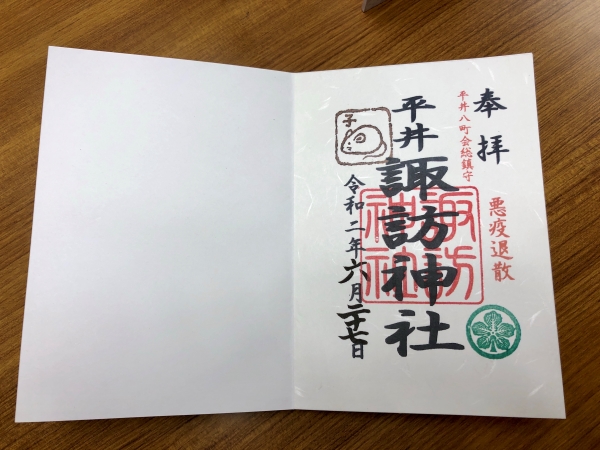 奉拝
悪疫退散
平井八町会総鎮守
平井諏訪神社
諏訪
神社
子
令和二年六月二十七日